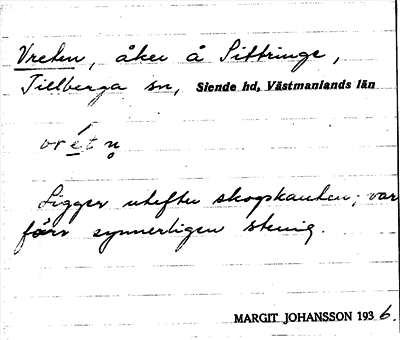 Vreten, åker å Sittringe,
Tillberga sn, Siende hd, Västmanlands län
vrétn̥
Ligger utefter skogskanten; var
förr synnerligen stenig.
MARGIT JOHANSSON 1936.